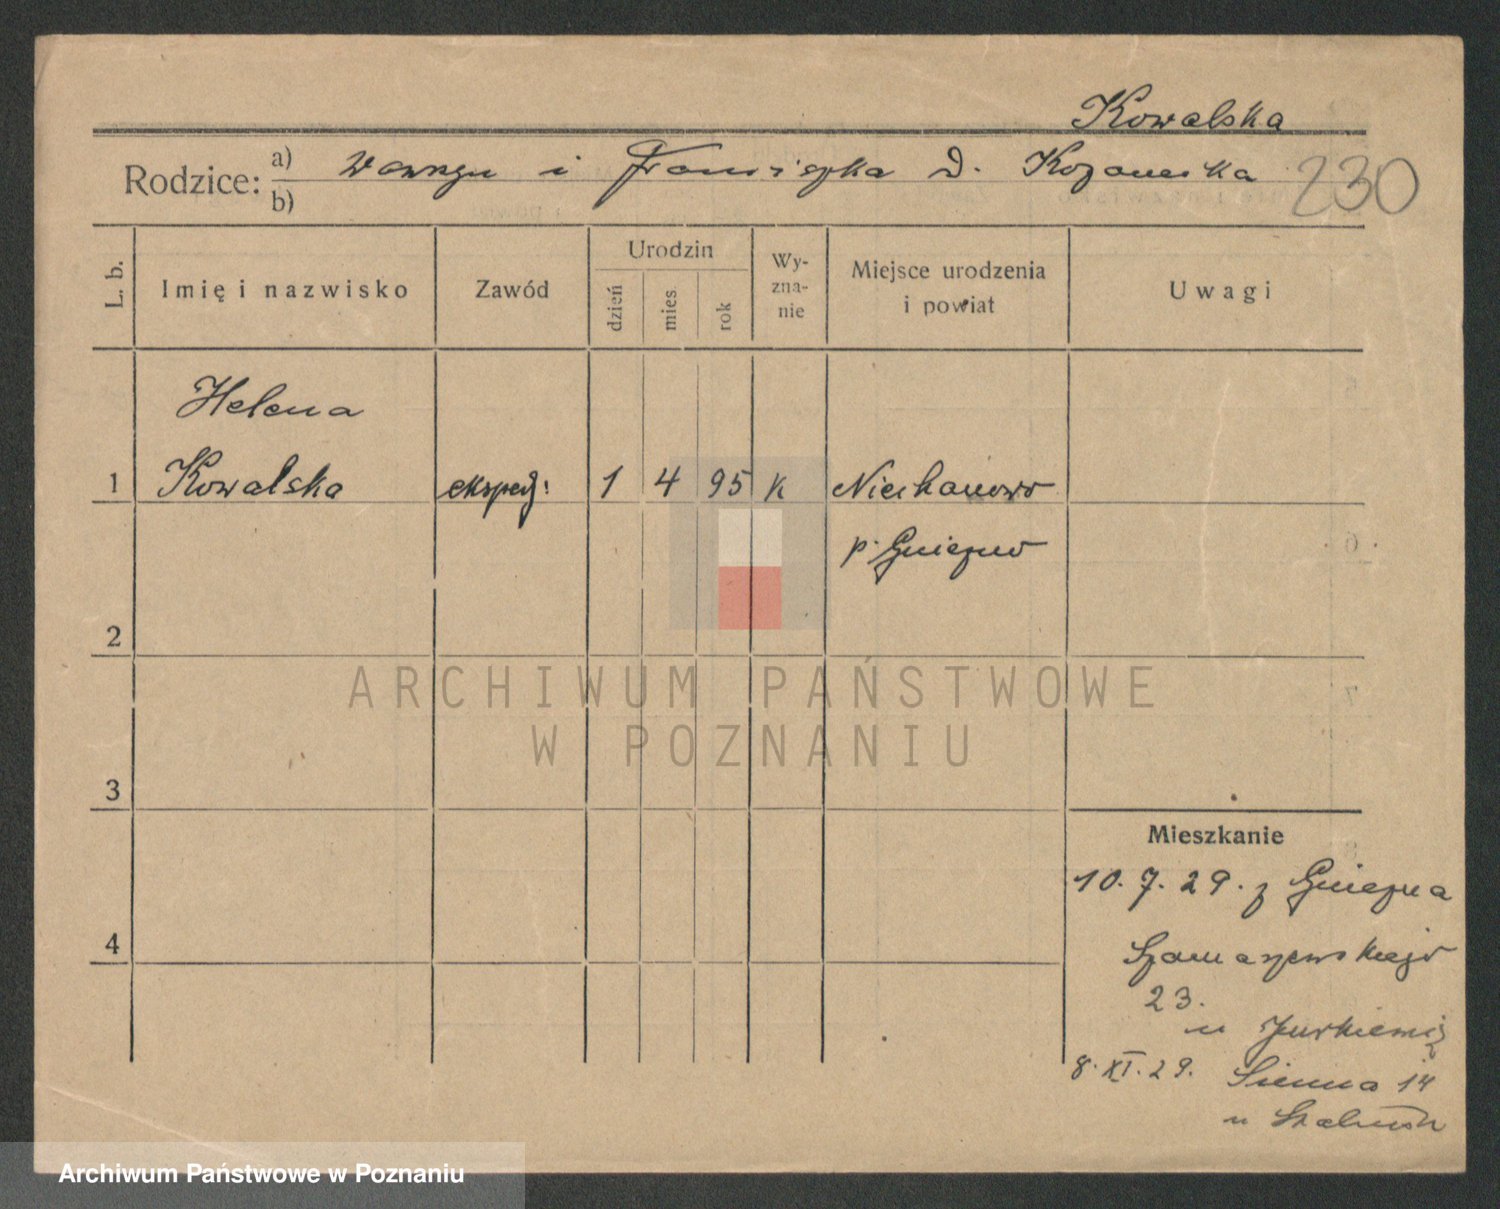 Kowalska
Rodzice: a) Wawrzyn i Franciszka d. Kozanecka 230
b)
L. b.
Imię i nazwisko
Zawód
Urodzin
dzień
mies.
rok
Wy-
zna-
nie
Miejsce urodzenia
i powiat
Uwagi
Helena
1 Kowalska eksped: 1 4 95 k Niechanowo
p. Gniezno
2
ARCHIWUM PAŃSTWOWE
W POZNANIU
3
Mieszkanie
10. 7. 29. z Gniezna
4
Szamarzewskiego
23.
u Jurkiewicz
8. XI. 29. Sienna 14
u
Archiwum Państwowe w Poznaniu